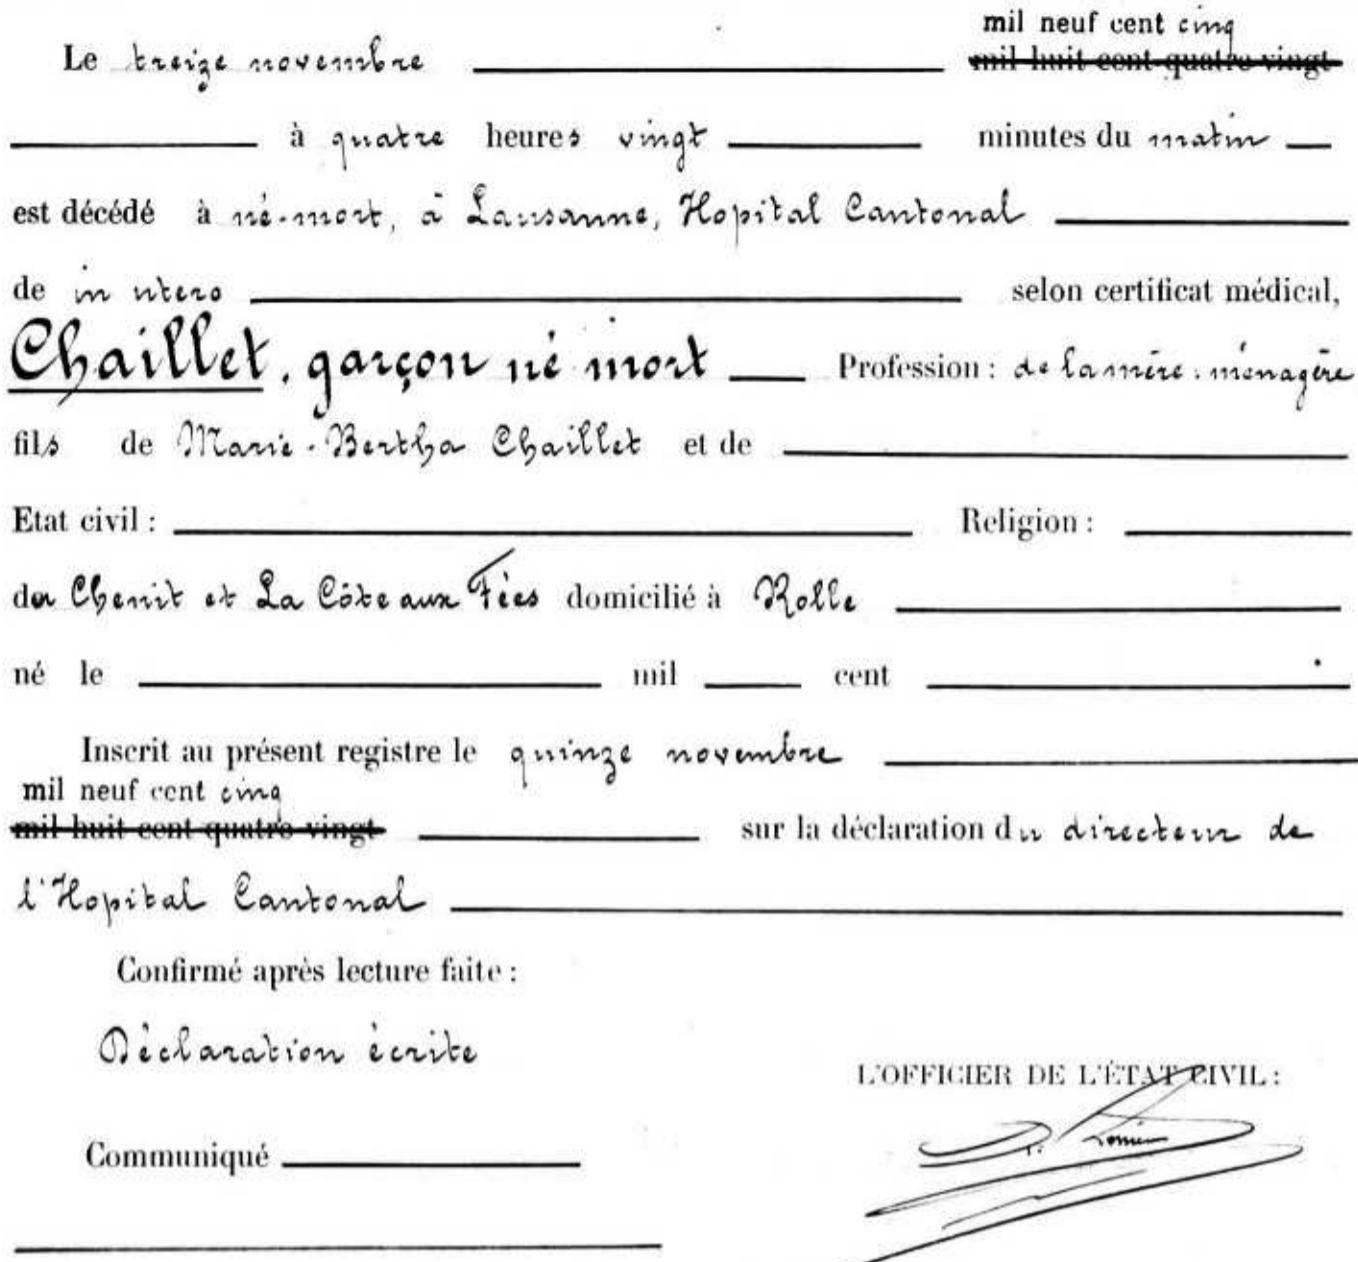 mil neuf cent cinq
Le treize novembre mil huit cent quatre vingt
à quatre heures vingt minutes du matin
est décédé à né-mort, à Lausanne, Hopital Cantonal
de in utero selon certificat médical,
Chaillet, garçon né mort Profession : de la mère : ménagère
fils de Marie-Bertha Chaillet et de
Etat civil : Religion :
du Chenit et La Côte aux Fées domicilié à Rolle
né le mil cent
Inscrit au présent registre le quinze novembre
mil neuf cent cinq
mil huit cent quatre vingt sur la déclaration du directeur de
l'Hopital Cantonal
Confirmé après lecture faite :
Déclaration écrite
L'OFFICIER DE L'ÉTAT CIVIL :
Communiqué